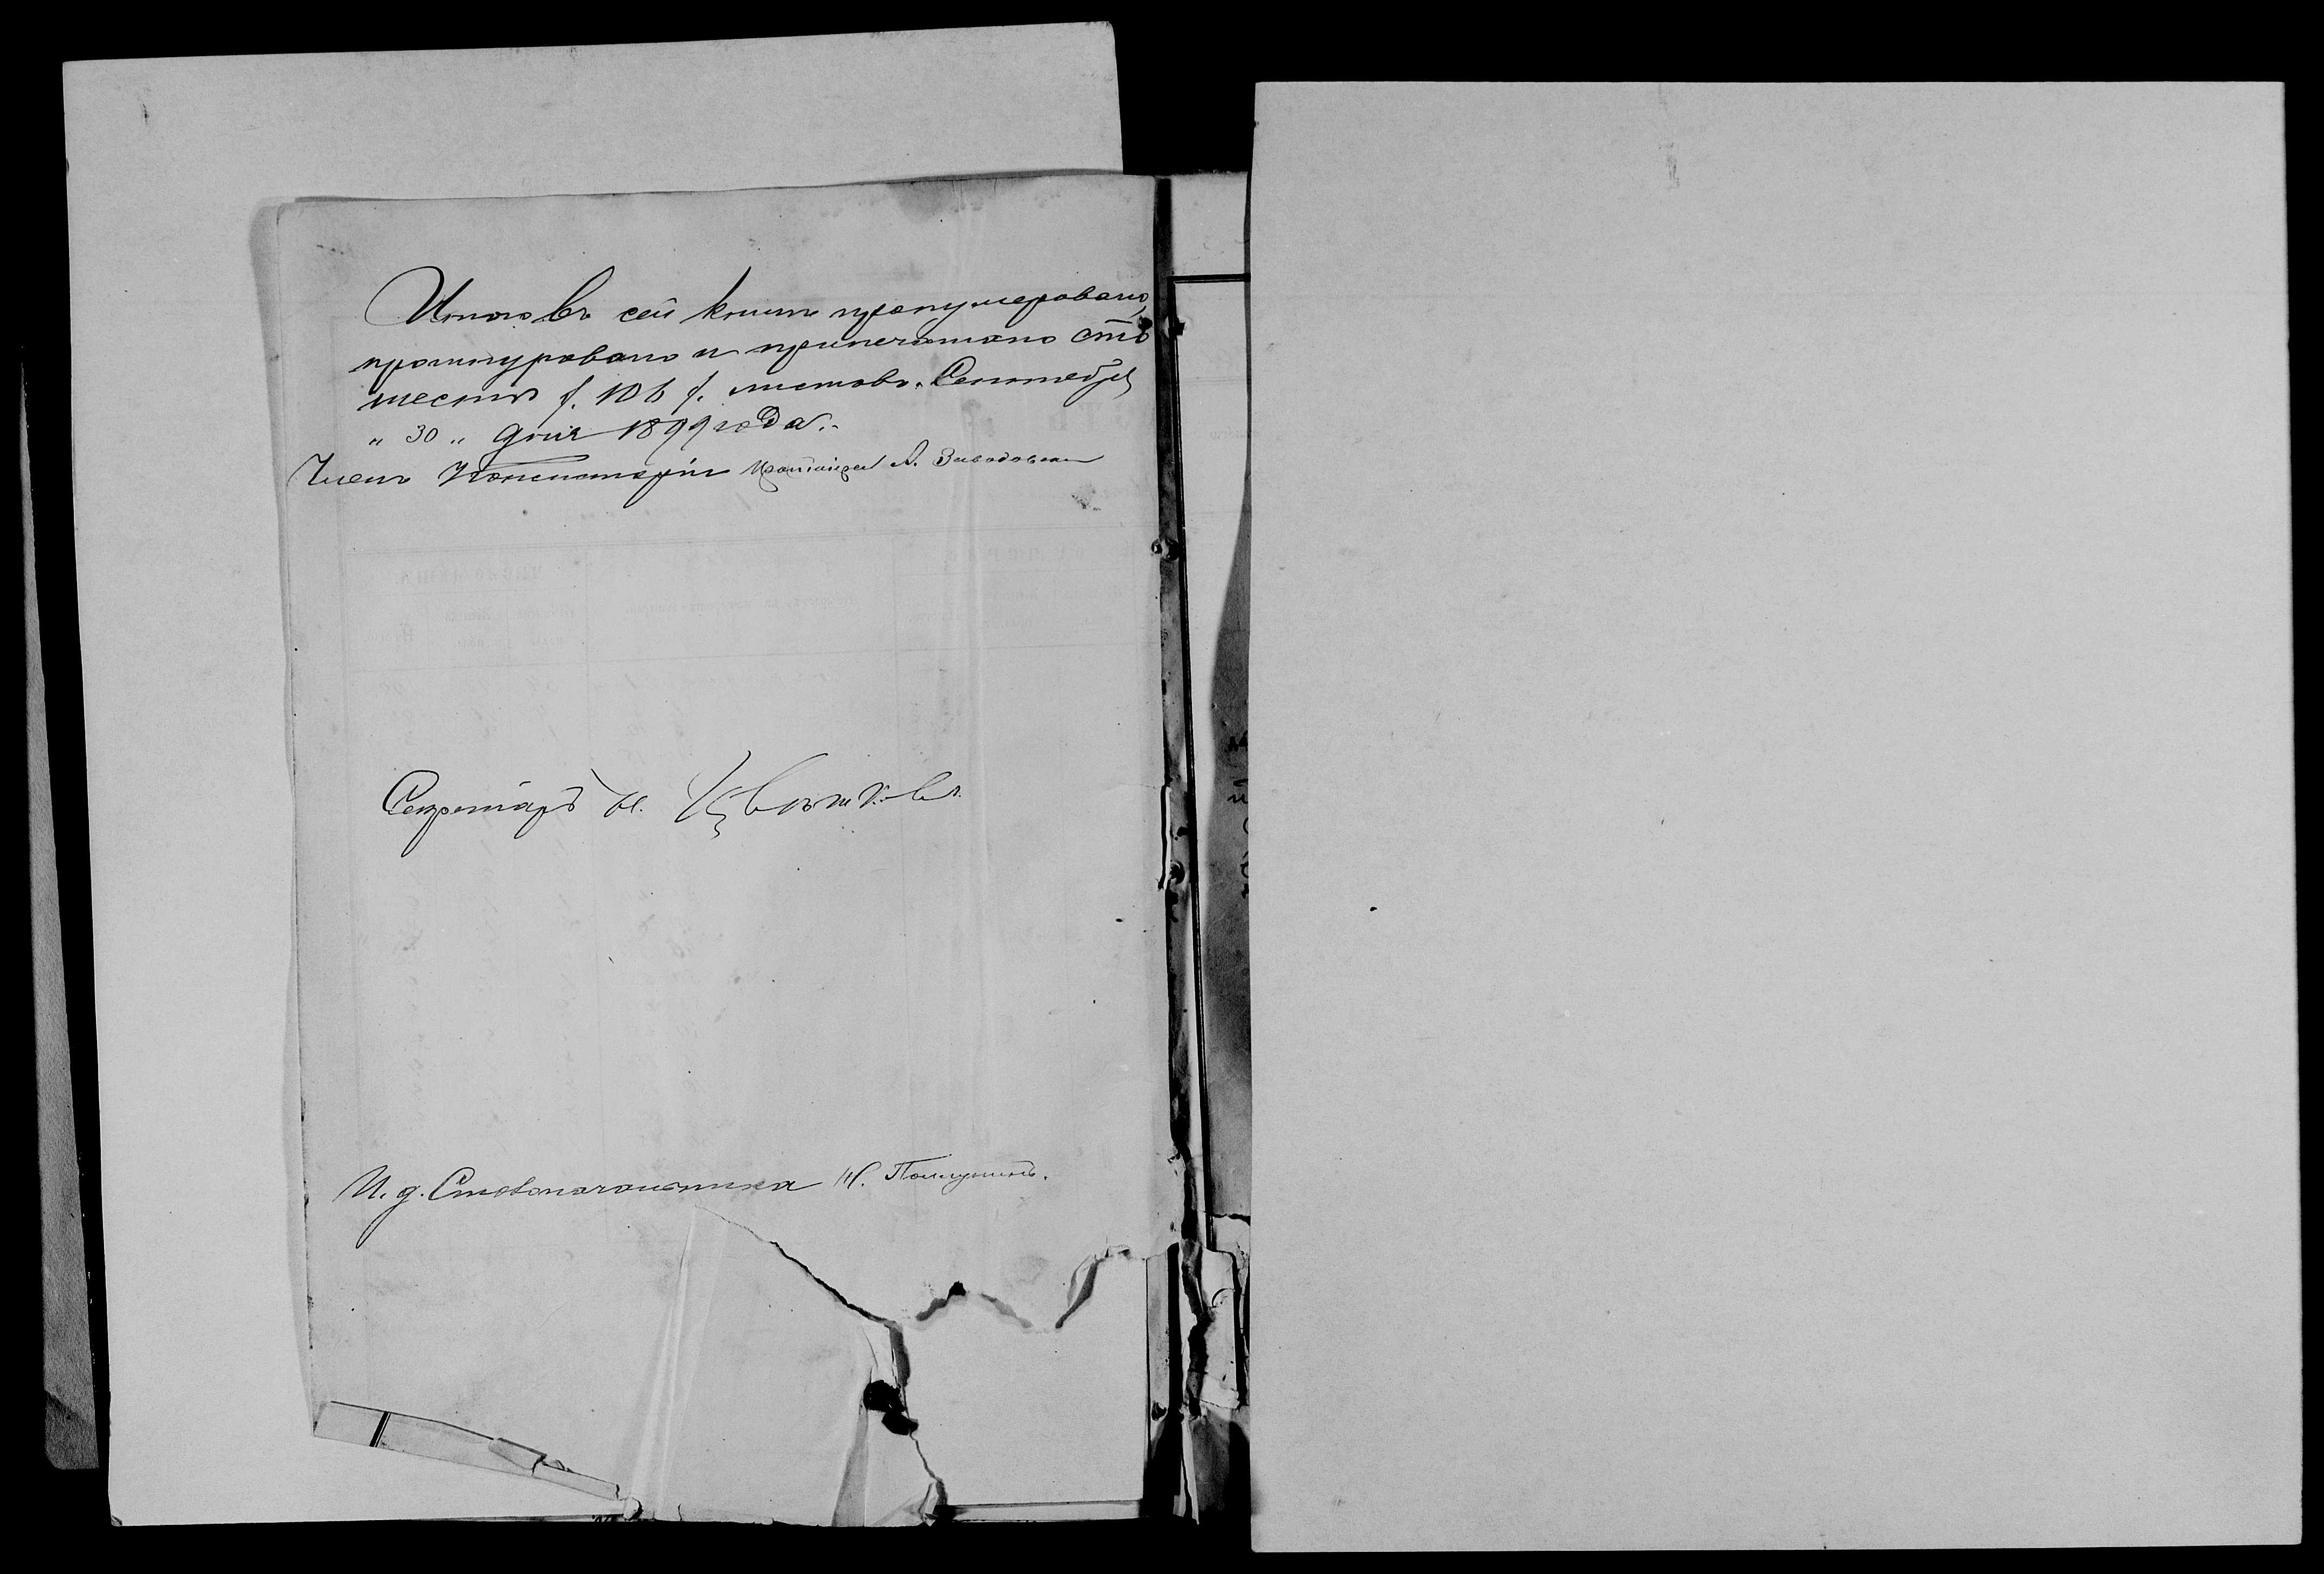 Итого въ сей книге пронумеровано,
прошнуровано и припечатано сто
шесть /. 106 /. листовъ. Сентября
„ 30 „ дня 1899 года.
Членъ Консисторіи Протоіерей А. Заводовскій
Секретарь Н. Цвѣтковъ.
И. д. Столоначальника Н.